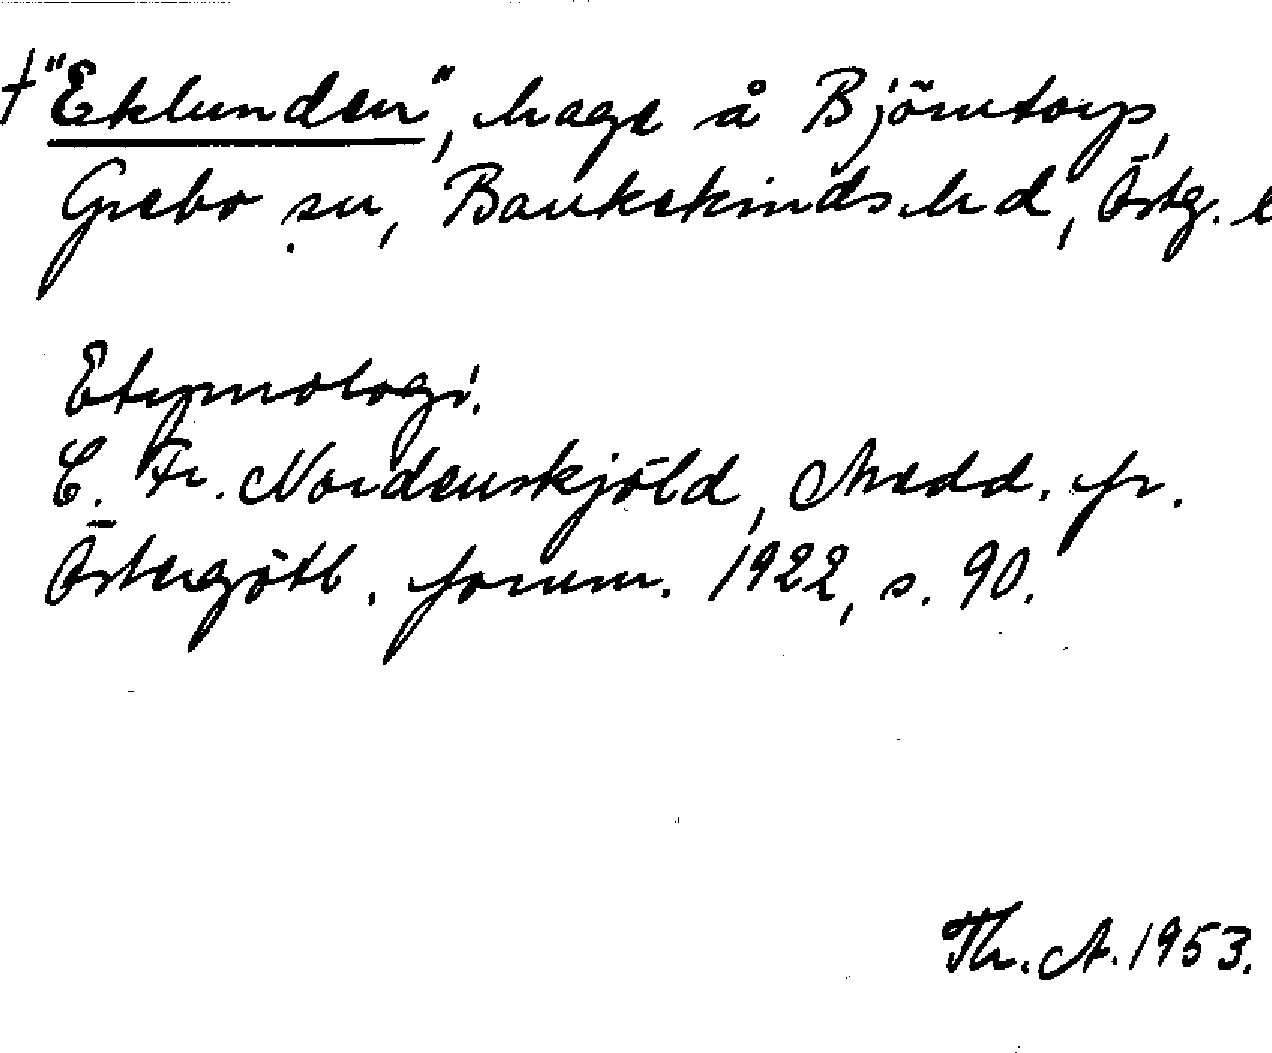 † "Eklunden", hage å Björntorp,
Grebo sn, Bankekinds hd, Östg. l
Etymologi.
C. Fr. Nordenskjöld, Medd. fr.
Östergötl. fornm. 1922, s. 90.
Th. A. 1953.